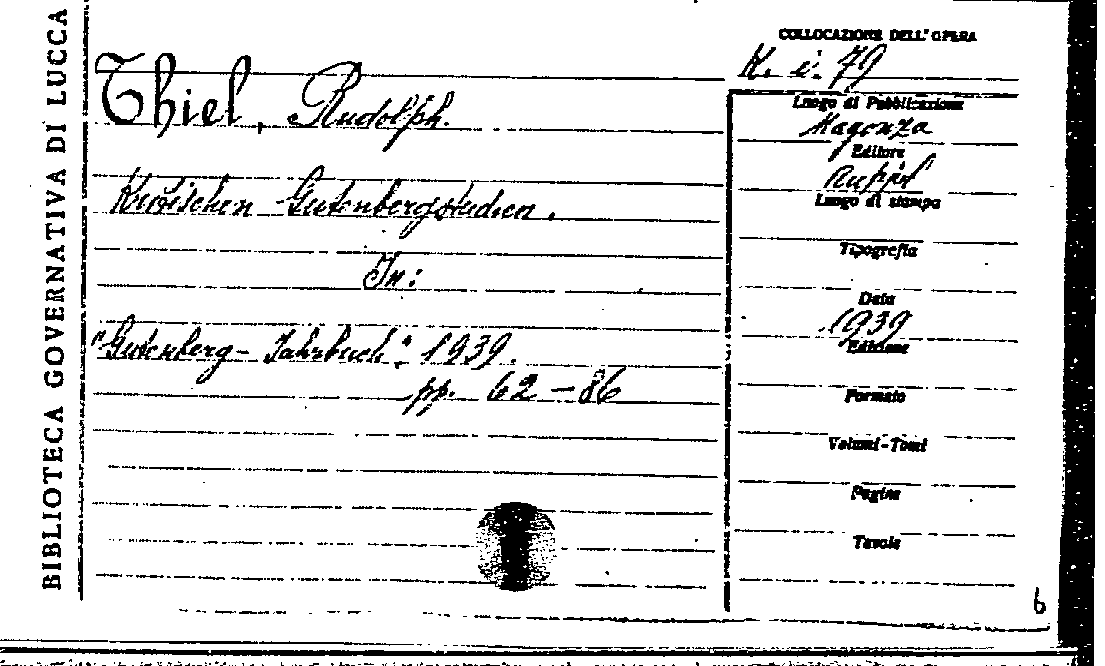 BIBLIOTECA GOVERNATIVA DI LUCCA
Thiel, Rudolph.
Kritischen Gutenbergstudien.
In:
"Gutenberg-Jahrbuch". 1939.
pp. 62-86
COLLOCAZIONE DELL'OPERA
K. i. 79
Luogo di Pubblicazione
Magonza
Editore
Ruppel
Luogo di stampa
Tipografia
Data
1939
Edizione
Formato
Volumi-Tomi
Pagine
Tavole
6